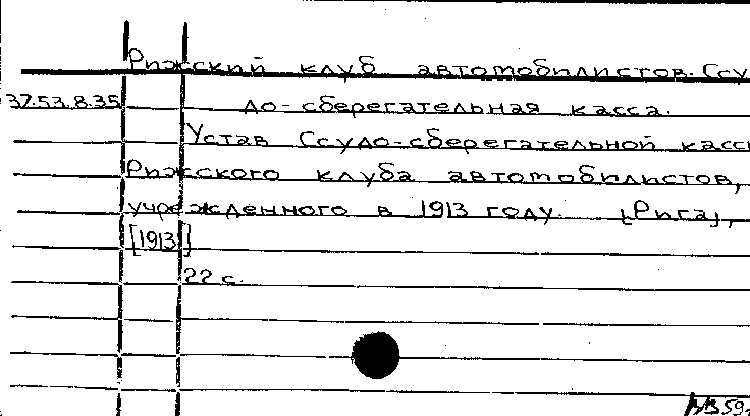 Рижский клуб автомобилистов. Ссу
37.53.8.35 до-сберегательная касса.
Устав Ссудо-сберегательной касс
Рижского клуба автомобилистов,
учрежденного в 1913 году. [Рига],
[1913]
22 с.